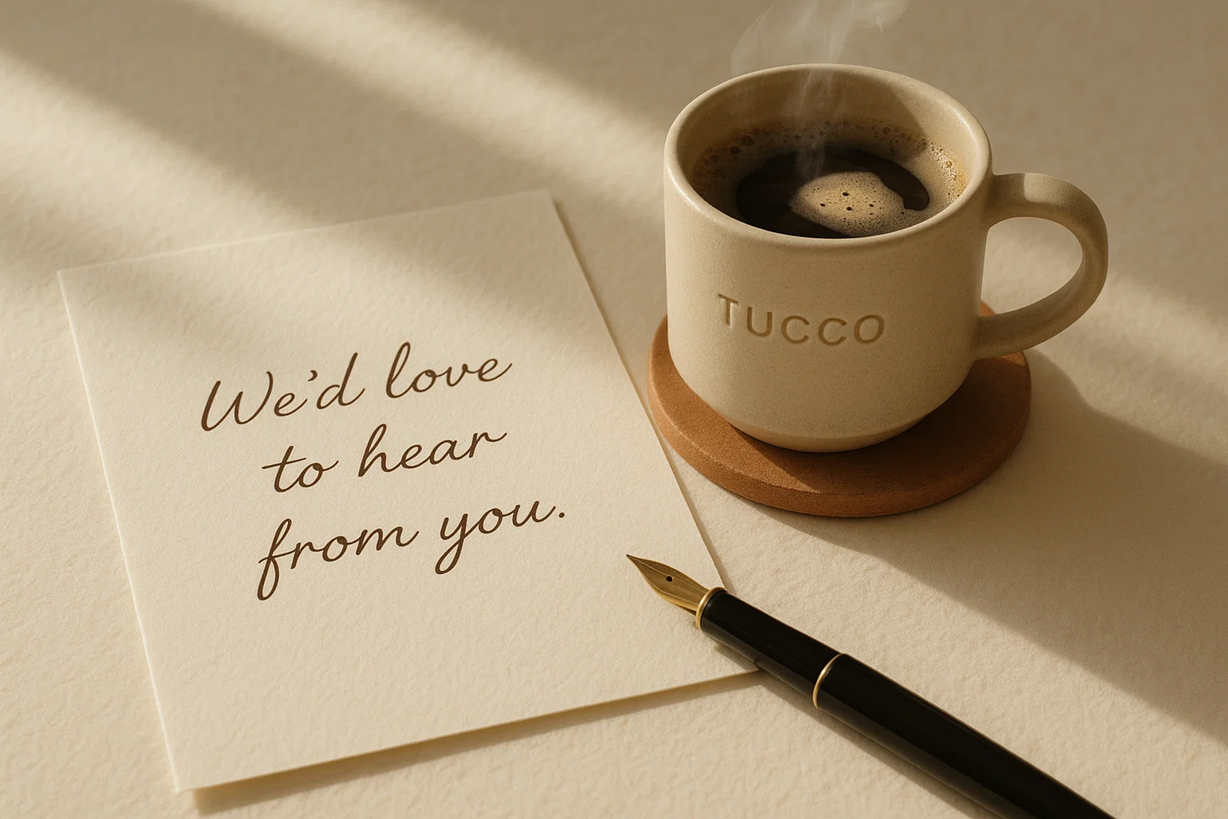 We'd love
to hear
from you.
TUCCO